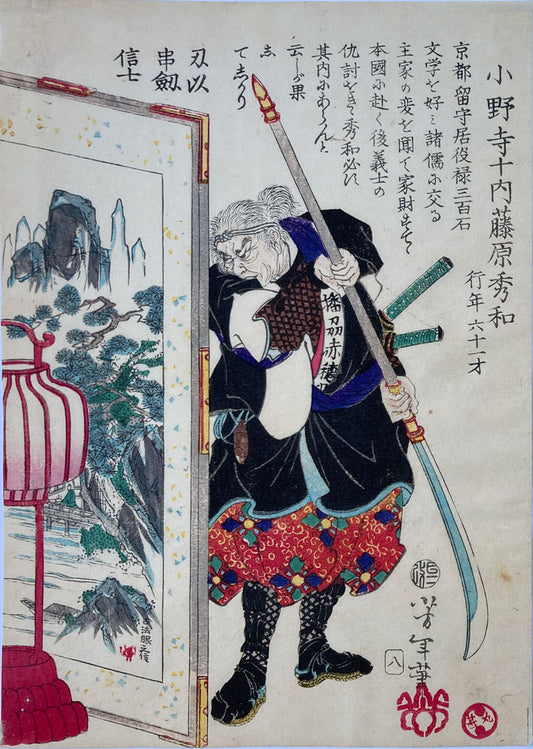 小野寺十内藤原秀和
行年六十一才
京都留守居役禄三百石
文学を好ミ諸儒に交る
主家の変を聞て家財を
本國に赴く後義士の
仇討をきて秀和必ず
其内にあらんと
云しが果
し
て
刃以
串劔
信士
播刕赤穂
法眼元信
芳年筆
八